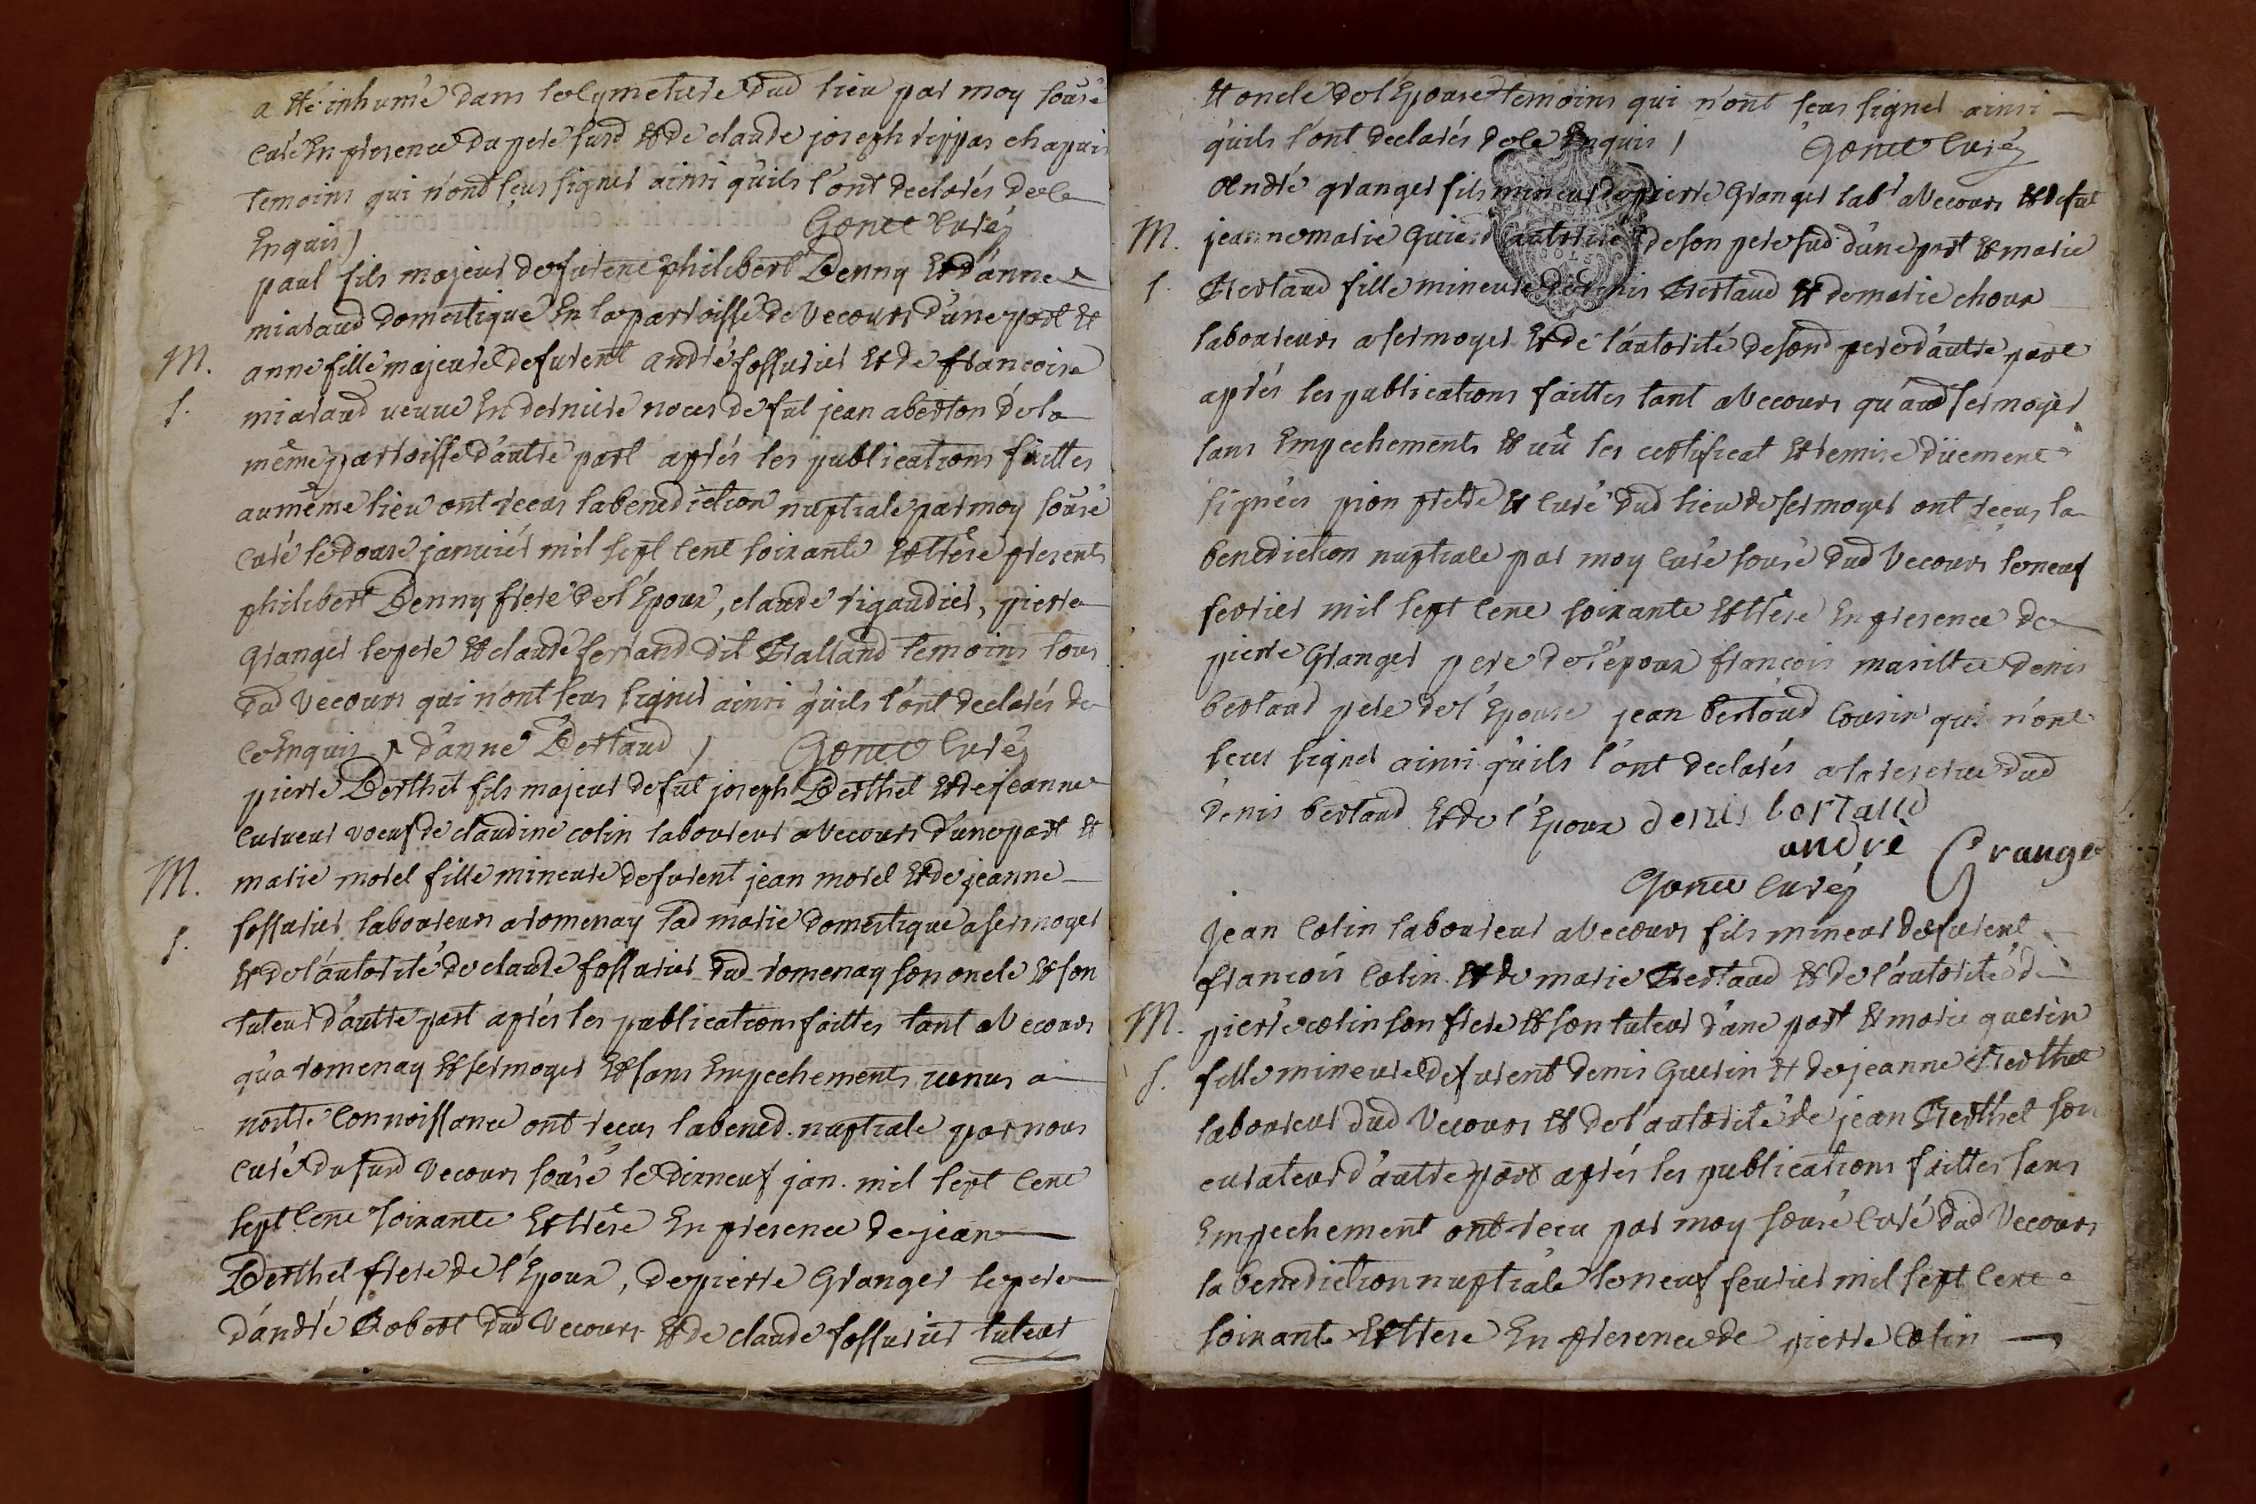 a été inhumé dans le cymetiere dud lieu par moy sousé
curé En presence du pere susd Et de claude joseph rippas chapuis
temoins qui n'ont sçus signer ainsi qu'ils l'ont declarés de le
Enquis / Gonet Curé
paul fils majeur de furent philibert Benny Et d'anne
miaraud domestique En la parroisse de Vecours d'une part Et
M. anne fille majeure de furent andré fossurier Et de françoise
S. miaraud veuve En derniere noces de fut jean aberton de la
même parroisse d'autre part aprés les publications faittes
au même lieu ont recus la benediction nuptiale par moy sousé
curé le douze janvier mil sept Cent soixante Et trêse presents
philibert Benny frere de l'Epoux, claude rigaudier, pierre
Granger le pere Et claude ferrand dit Balland temoins tous
dud Vecours qui n'ont sçus signer ainsi qu'ils l'ont declarés de
le Enquis / d'anne Bertaud / Gonet Curé
pierre Berthet fils majeur de fut joseph Berthet Et de jeanne
Curveur voeuf de claudine colin laboureur a Vecours d'une part Et
M. marie morel fille mineure de furent jean morel Et de jeanne
S. fossurier laboureurs a romenay lad marie domestique a sermoyer
Et de l'autorité de claude fossurier dud romenay son oncle Et son
tuteur d'autre part aprés les publications faittes tant a Vecours
qu'a romenay Et sermoyer Et sans Empechements venus a
nottre Connoissance ont recus la bened. nuptiale par nous
curé du susd Vecours sousé le dixneuf jan. mil sept Cent
sept Cent soixante Et trêse En presence de jean
Berthet frere de l'Epoux, de pierre Granger le pere
d'andré Robert dud Vecours Et de claude fossurier tuteur
Et oncle de l'Epouse temoins qui n'ont sçus signer ainsi
qu'ils l'ont declarés de le Enquis / Gonet Curé
André granger fils mineur de pierre Granger labr a Vecours Et de fut
M. jeanne marie autorisé de son pere sud d'une part Et marie
S. Bertaud fille mineure de denis Bertaud Et de marie choux
laboureurs a sermoyer Et de l'autorité de sond pere d'autre part
aprés les publications faittes tant a Vecours qu'aud sermoyer
sans Empechements Et vû les certificat Et remise düement
signées pion pretre Et Curé dud lieu de sermoyer ont reçus la
benediction nuptiale par moy Curé sousé dud Vecours le neuf
fevrier mil sept Cent soixante Et trêse En presence de
pierre Granger pere de l'epoux françois marillet denis
bertaud pere de l'Epouse jean bertaud Cousin qui n'ont
sçus signer ainsi qu'ils l'ont declarés a la reserve dud
denis bertaud Et de l'Epoux denis bertaud
andrè Granger
Gonet Curé
jean Colin laboureur a Vecours fils mineur de furent
françois Colin Et de marie Bertaud Et de l'autorité de
M. pierre colin son frere Et son tuteur d'une part Et marie guerin
S. fille mineure de furent denis Guerin Et de jeanne Berthet
laboureur dud Vecours Et de l'autorité de jean Berthet son
curateur d'autre part aprés les publications faittes sans
Empechement ont recu par moy sousé Curé dud Vecours
la benediction nuptiale le neuf fevrier mil sept Cent
soixante Et trese En presence de pierre Colin